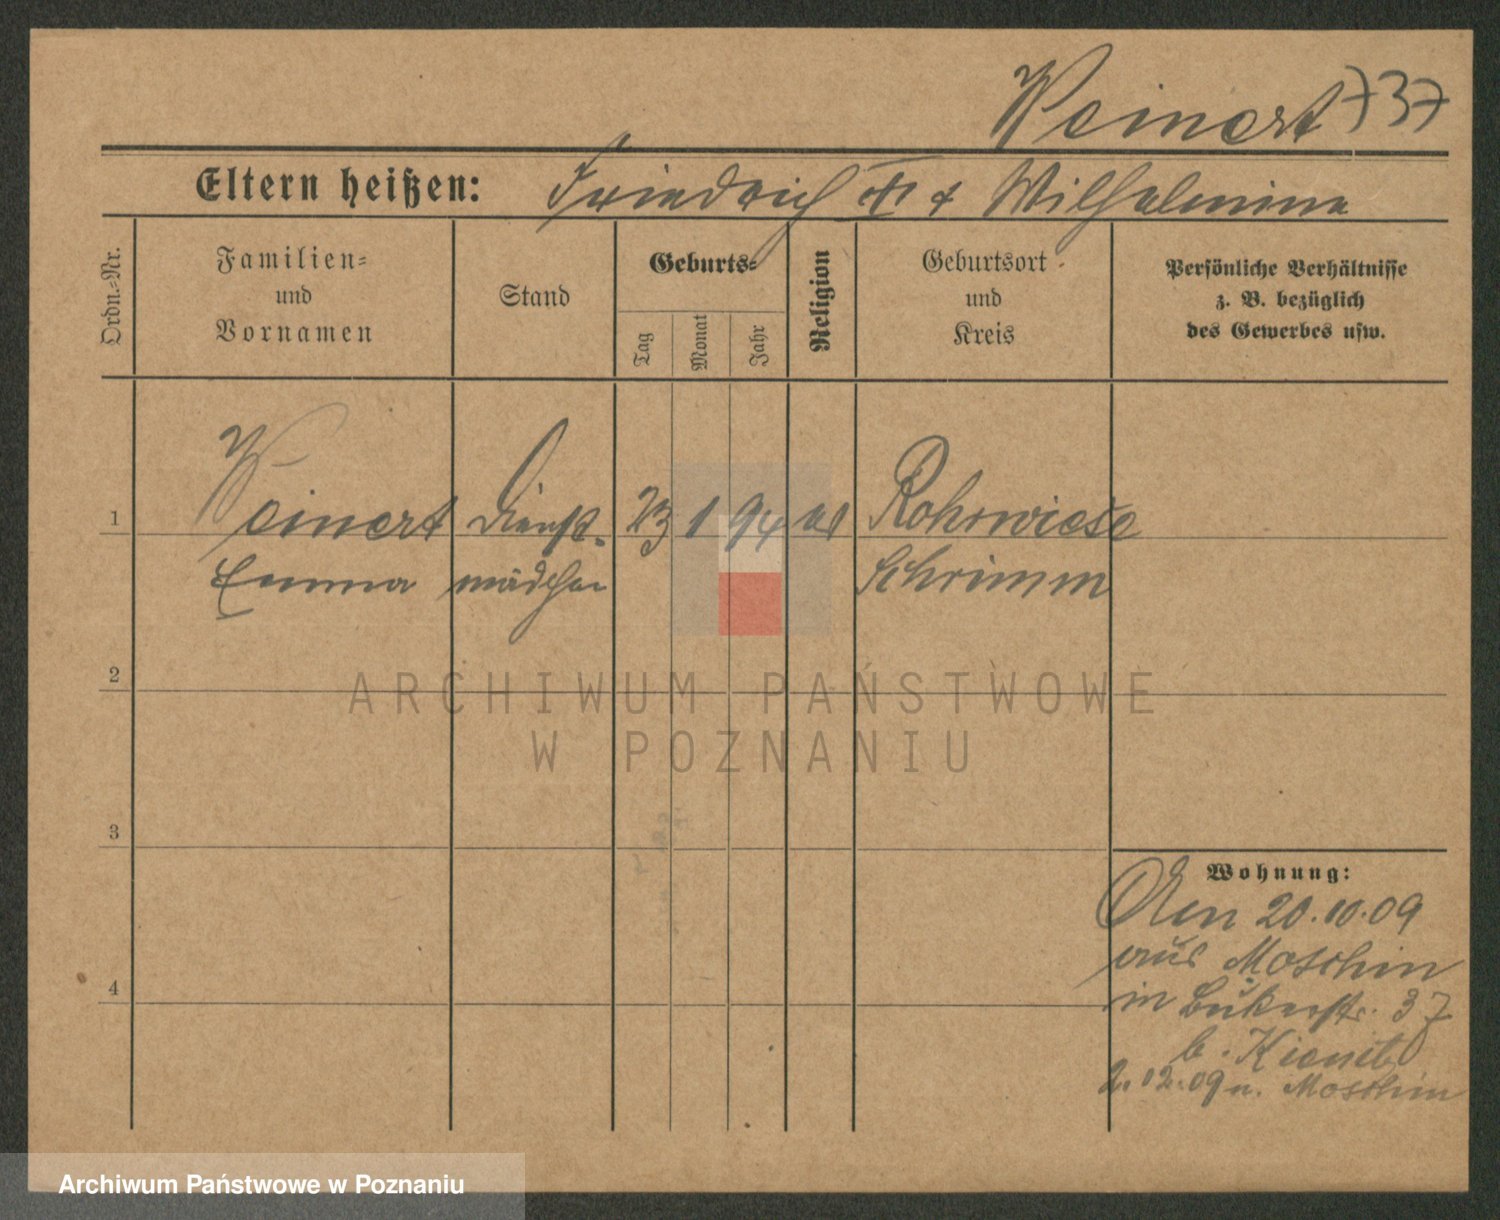 Weinert 737
Eltern heißen: Friedrich & Wilhelmine
Ordn.=Nr.
Familien=
und
Vornamen
Stand
Geburts=
Tag
Monat
Jahr
Religion
Geburtsort
und
Kreis
Persönliche Verhältnisse
z. B. bezüglich
des Gewerbes usw.
1 Weinert Dienst- 23 1 94 Rohrwiese
Emma mädchen Schrimm
2
ARCHIWUM PAŃSTWOWE
W POZNANIU
3
Wohnung:
20.10.09
aus Moschin
in Bukerstr. 37
b.
2.12.09 n. Moschin
4
Archiwum Państwowe w Poznaniu